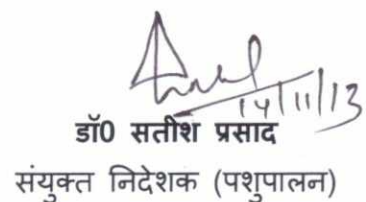 14/11/13
डॉ0 सतीश प्रसाद
संयुक्त निदेशक (पशुपालन)